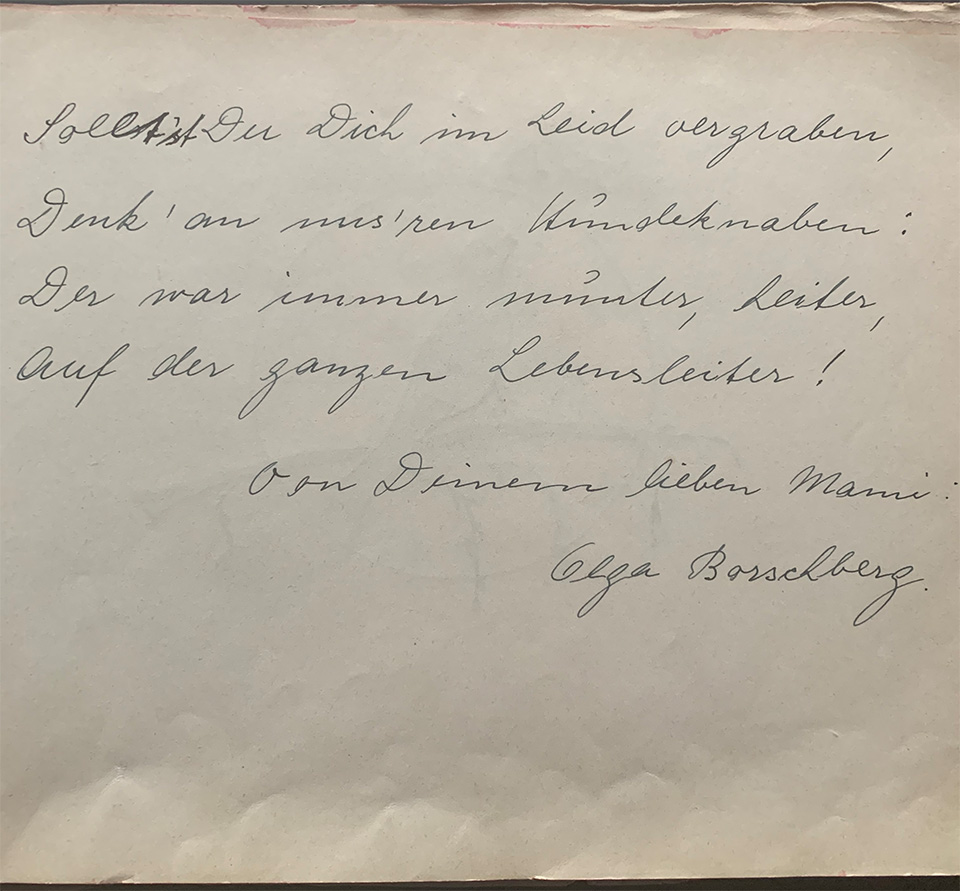 Sollt'st Du Dich im Leid vergraben,
Denk' an uns'ren Hundeknaben:
Der war immer munter, heiter,
Auf der ganzen Lebensleiter!
Von Deinem lieben Mami:
Olga Borschberg.